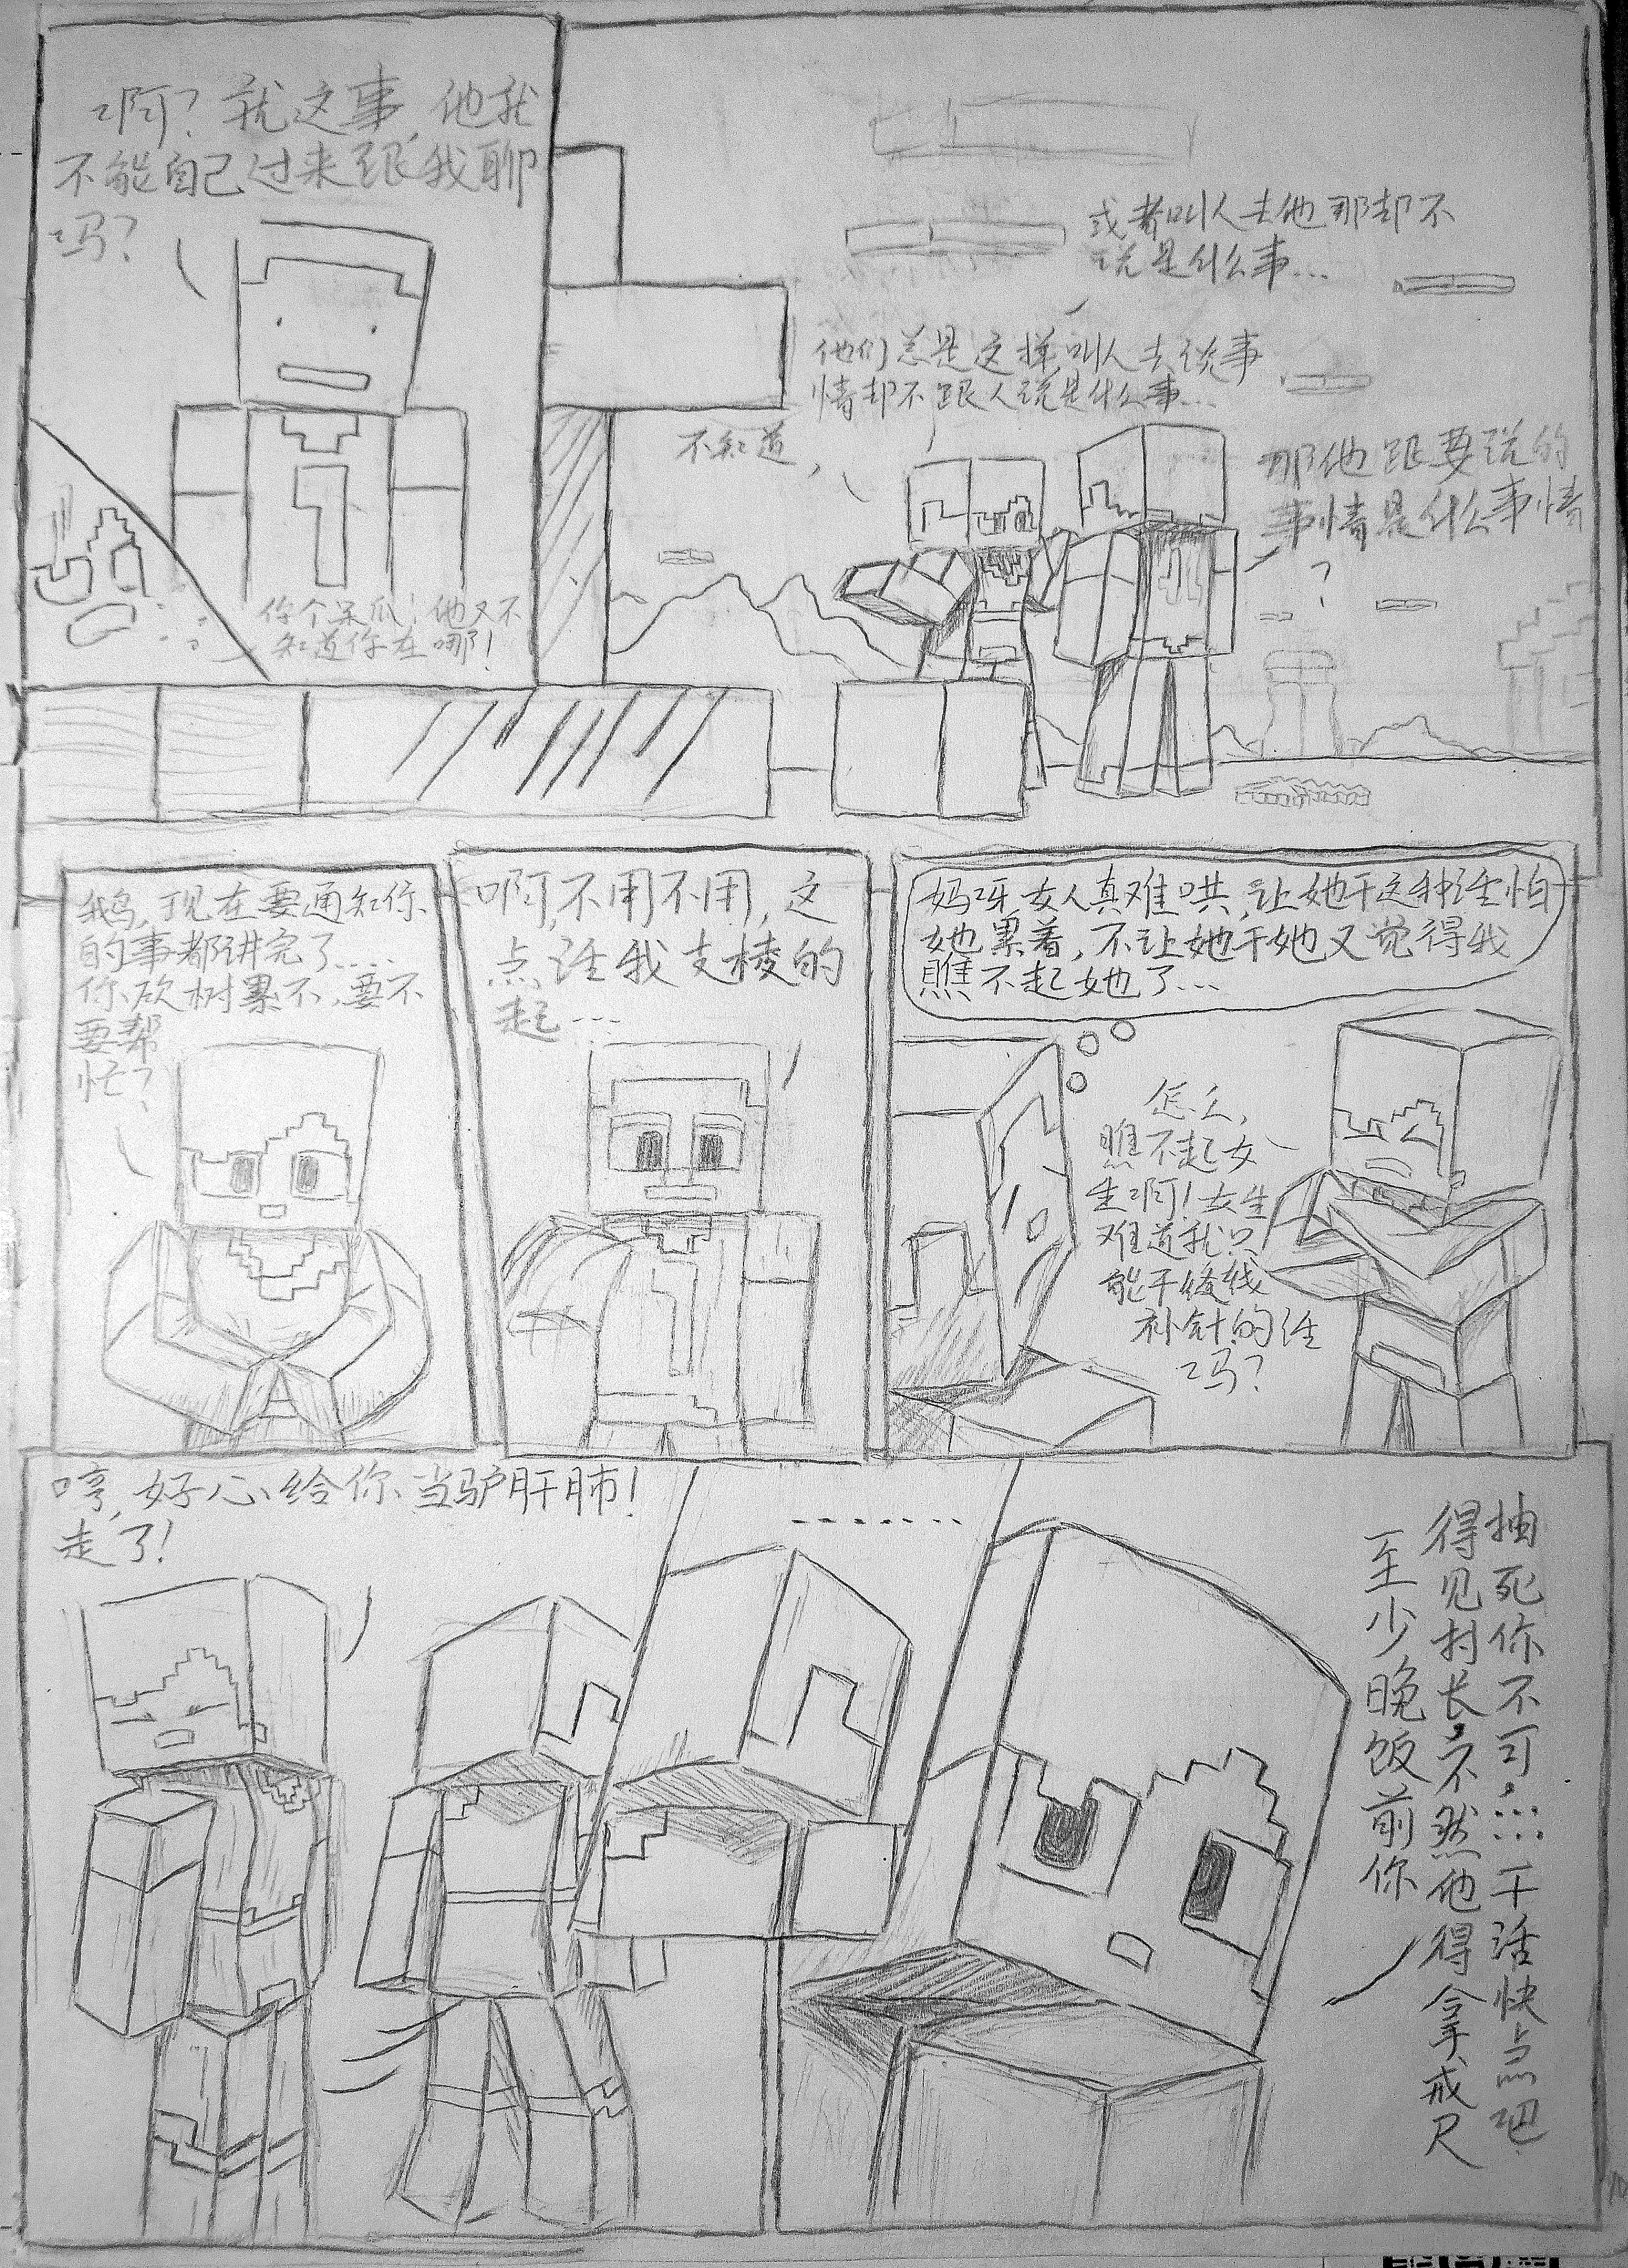 啊？就这事，他就
不能自己过来跟我聊
吗？
你个呆瓜！他又不
知道你在哪！
那他跟要说的
事情是什么事情
？
不知道，
他们总是这样，叫人去说事
情却不跟人说是什么事...
或者叫人去他那却不
说是什么事...
现在要通知你
的事都讲完了....
你砍树累不，要不
要帮
忙？
啊，不用不用，这
点活我支棱的
起...
妈呀，女人真难哄，让她干这种活怕
她累着，不让她干她又觉得我
瞧不起她了...
怎么，
瞧不起女
生啊！女生
难道就只
能干缝线
补针的活
吗？
哼，好心给你当驴肝肺！
走了！
.......
至少晚饭前你
得见村长，不然他得拿戒尺
抽死你不可......干活快点吧